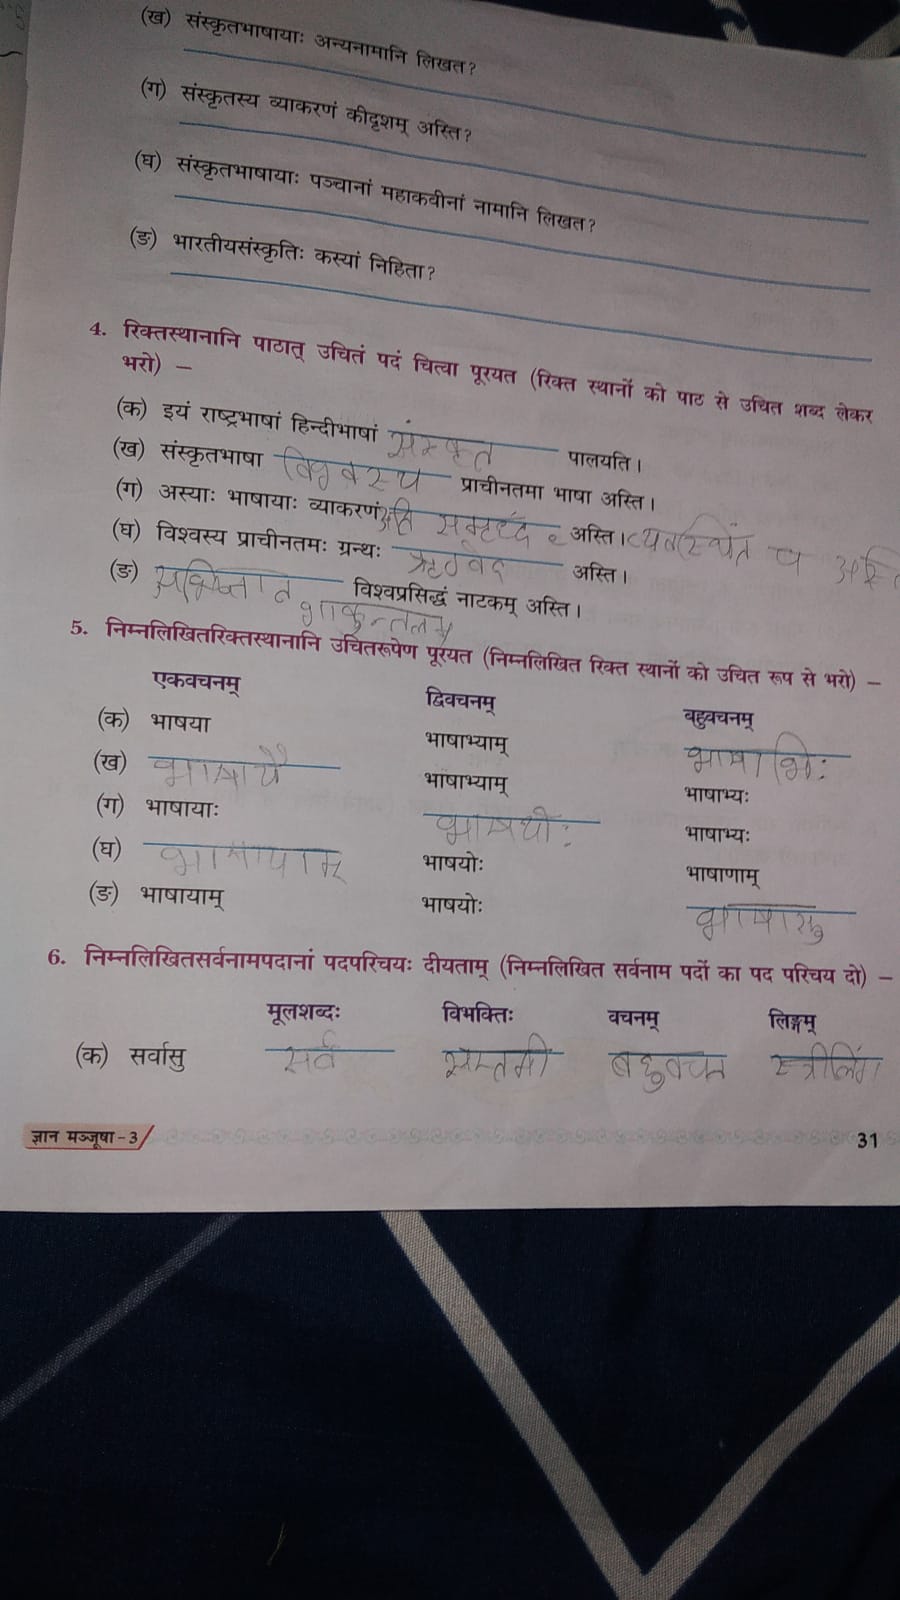 (ख) संस्कृतभाषायाः अन्यनामानि लिखत?
(ग) संस्कृतस्य व्याकरणं कीदृशम् अस्ति?
(घ) संस्कृतभाषायाः पञ्चानां महाकवीनां नामानि लिखत?
(ङ) भारतीयसंस्कृतिः कस्यां निहिता?
4. रिक्तस्थानानि पाठात् उचितं पदं चित्वा पूरयत (रिक्त स्थानों को पाठ से उचित शब्द लेकर
भरो) –
(क) इयं राष्ट्रभाषां हिन्दीभाषां संस्कृत पालयति।
(ख) संस्कृतभाषा विश्वस्य प्राचीनतमा भाषा अस्ति।
(ग) अस्याः भाषायाः व्याकरणं अति समृद्धं अस्ति। व्यवस्थितं च अस्ति
(घ) विश्वस्य प्राचीनतमः ग्रन्थः ऋग्वेद अस्ति।
(ङ) अभिज्ञान विश्वप्रसिद्धं नाटकम् अस्ति।
शाकुन्तलम्
5. निम्नलिखितरिक्तस्थानानि उचितरूपेण पूरयत (निम्नलिखित रिक्त स्थानों को उचित रूप से भरो) –
एकवचनम् द्विवचनम् बहुवचनम्
(क) भाषया भाषाभ्याम् भाषाभिः
(ख) भाषायै भाषाभ्याम् भाषाभ्यः
(ग) भाषायाः भाषयोः भाषाभ्यः
(घ) भाषायाम् भाषयोः भाषाणाम्
(ङ) भाषायाम् भाषयोः भाषासु
6. निम्नलिखितसर्वनामपदानां पदपरिचयः दीयताम् (निम्नलिखित सर्वनाम पदों का पद परिचय दो) –
मूलशब्दः विभक्तिः वचनम् लिङ्गम्
(क) सर्वासु सर्व सप्तमी बहुवचन स्त्रीलिंग
ज्ञान मञ्जूषा – 3 31